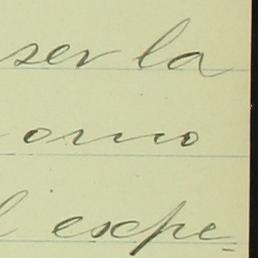 ser la
omo
l expe